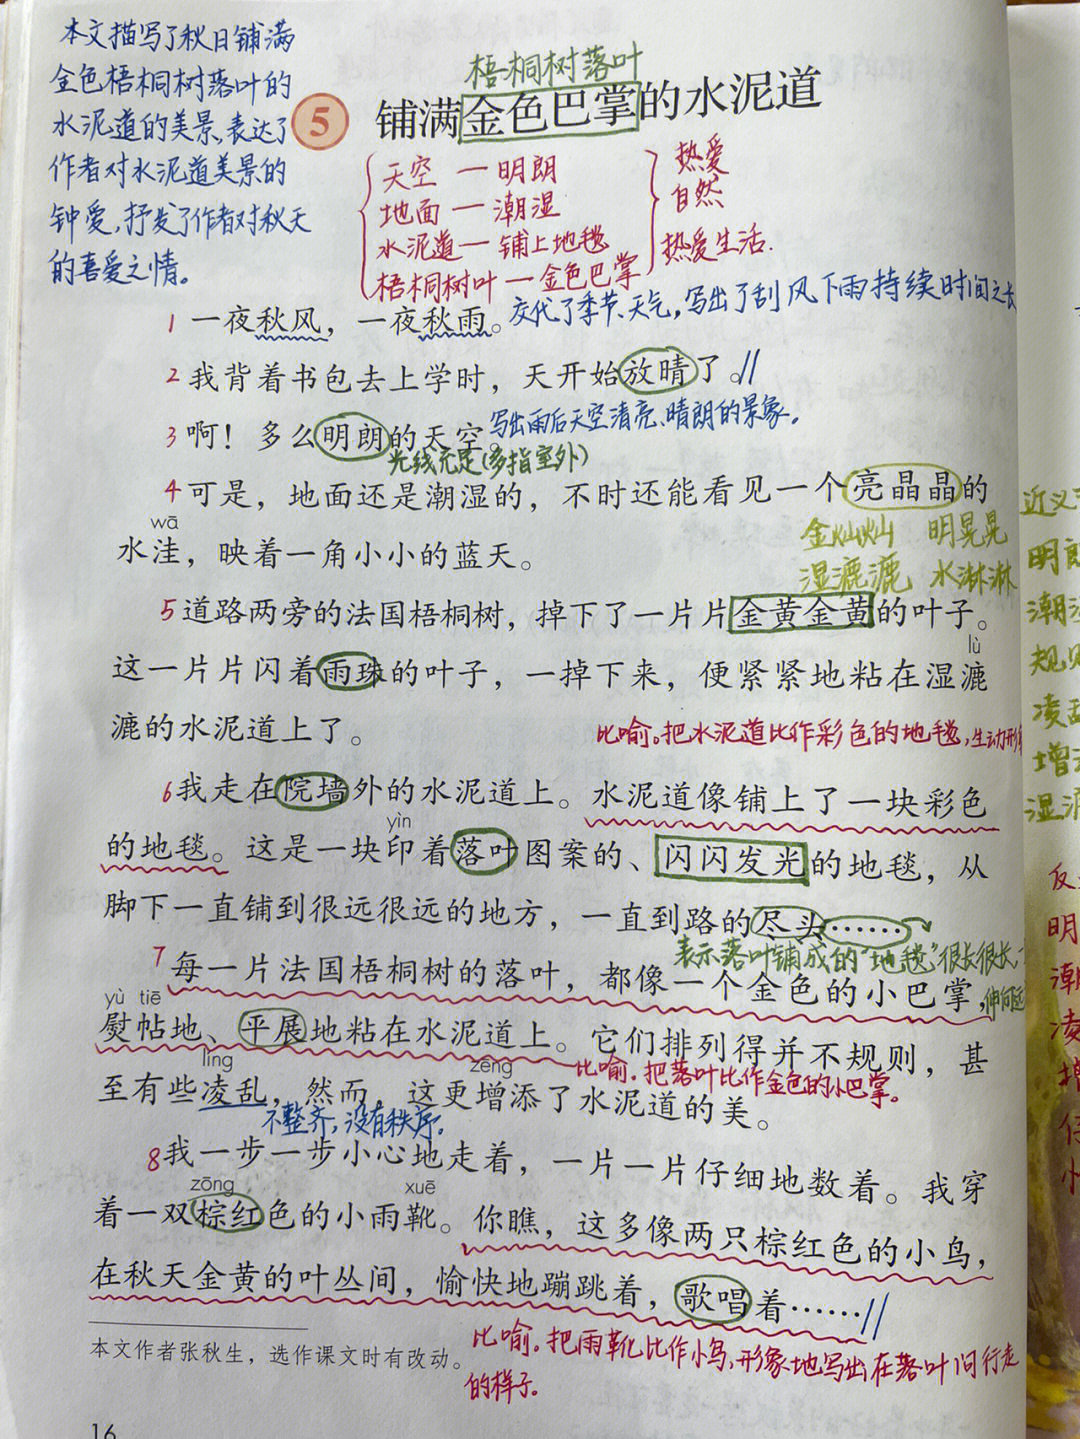 本文描写了秋日铺满
金色梧桐树落叶的
水泥道的美景,表达了
作者对水泥道美景的
钟爱,抒发了作者对秋天
的喜爱之情。
梧桐树落叶
5 铺满金色巴掌的水泥道
天空 — 明朗
地面 — 潮湿
水泥道 — 铺上地毯
梧桐树叶 — 金色巴掌
热爱
自然
热爱生活.
1 一夜秋风，一夜秋雨。
交代了季节、天气,写出了刮风下雨持续时间之长
2 我背着书包去上学时，天开始放晴了。//
写出雨后天空清亮、晴朗的景象。
3 啊！多么明朗的天空。
光线充足(多指室外)
4 可是，地面还是潮湿的，不时还能看见一个亮晶晶的
wā
水洼，映着一角小小的蓝天。
金灿灿 明晃晃
湿漉漉 水淋淋
5 道路两旁的法国梧桐树，掉下了一片片金黄金黄的叶子。
lù
这一片片闪着雨珠的叶子，一掉下来，便紧紧地粘在湿漉
漉的水泥道上了。
比喻。把水泥道比作彩色的地毯,生动形
6 我走在院墙外的水泥道上。水泥道像铺上了一块彩色
yìn
的地毯。这是一块印着落叶图案的、闪闪发光的地毯，从
脚下一直铺到很远很远的地方，一直到路的尽头……
表示落叶铺成的“地毯”很长很长,
7 每一片法国梧桐树的落叶，都像一个金色的小巴掌，
yù tiē
熨帖地、平展地粘在水泥道上。它们排列得并不规则，甚
líng zēng
比喻。把落叶比作金色的小巴掌。
至有些凌乱，然而，这更增添了水泥道的美。
不整齐,没有秩序。
8 我一步一步小心地走着，一片一片仔细地数着。我穿
zōng xuē
着一双棕红色的小雨靴。你瞧，这多像两只棕红色的小鸟，
在秋天金黄的叶丛间，愉快地蹦跳着，歌唱着……//
比喻。把雨靴比作小鸟,形象地写出在落叶间行走
的样子。
本文作者张秋生，选作课文时有改动。
16
近义
明朗
潮湿
规则
凌乱
增
湿漉
反
明
潮
凌
增
仔
小